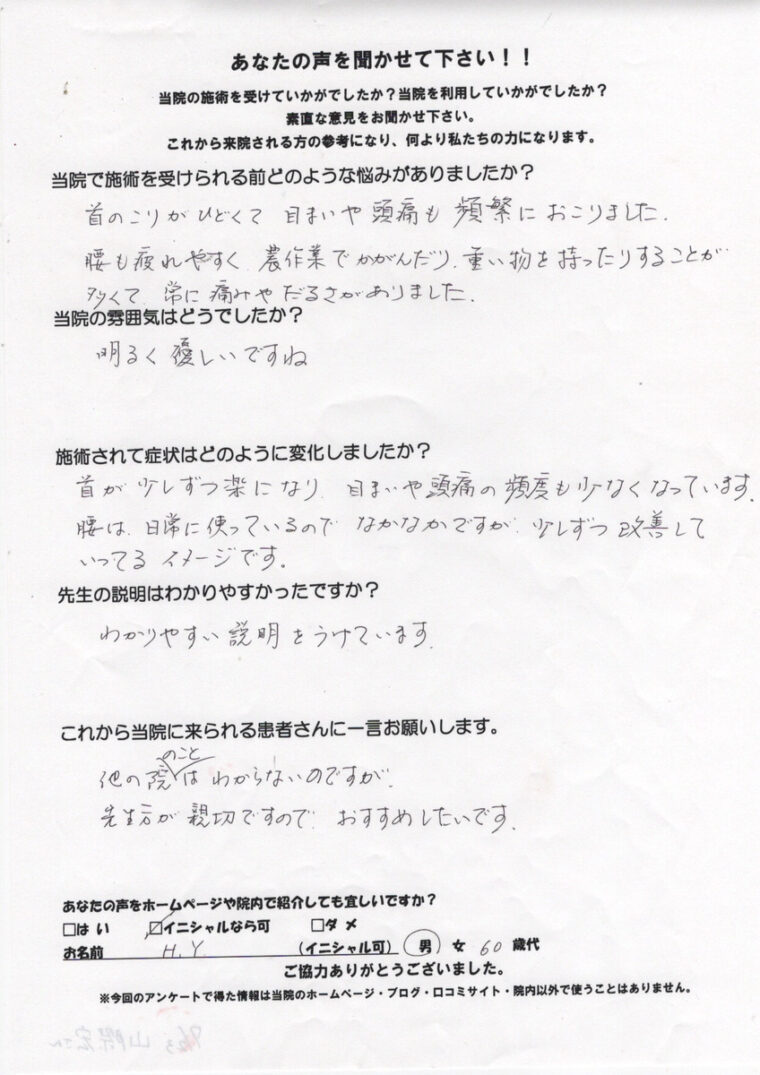 あなたの声を聞かせて下さい！！
当院の施術を受けていかがでしたか？当院を利用していかがでしたか？
素直な意見をお聞かせ下さい。
これから来院される方の参考になり、何より私たちの力になります。
当院で施術を受けられる前どのような悩みがありましたか？
首のこりがひどくて 目まいや頭痛も 頻繁に おこりました.
腰も疲れやすく、農作業でかがんだり、重い物を持ったりすることが
多くて、常に痛みやだるさがありました.
当院の雰囲気はどうでしたか？
明るく優しいですね
施術されて症状はどのように変化しましたか？
首が少しずつ楽になり、目まいや頭痛の頻度も少なくなっています.
腰は、日常に使っているので なかなかですが、少しずつ改善して
いってるイメージです.
先生の説明はわかりやすかったですか？
わかりやすい説明をうけています.
これから当院に来られる患者さんに一言お願いします。
他の院のことはわからないのですが、
先生方が親切ですので、おすすめしたいです.
あなたの声をホームページや院内で紹介しても宜しいですか？
□はい ☑イニシャルなら可 □ダメ
お名前 H.Y. (イニシャル可) 男 女 60 歳代
ご協力ありがとうございました。
※今回のアンケートで得た情報は当院のホームページ・ブログ・口コミサイト・院内以外で使うことはありません。